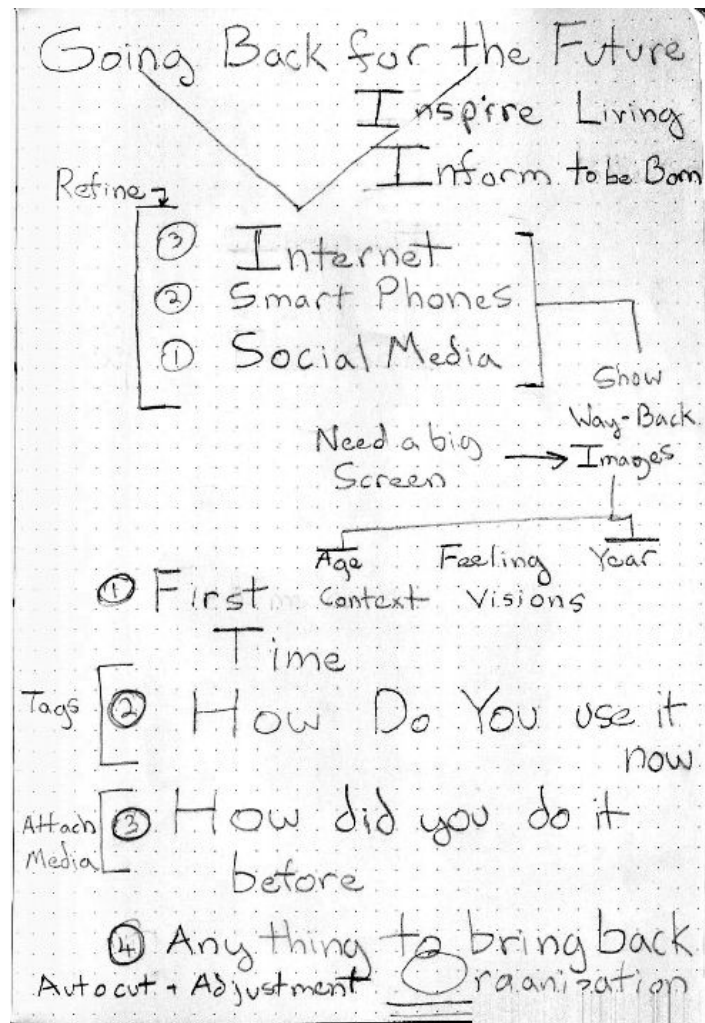 Going Back for the Future
Inspire Living
Inform to be Born
Refine
③ Internet
② Smart Phones
① Social Media
Show
Way-Back
Need a big
Screen
Images
Age Feeling Year
Context Visions
① First
Time
Tags
② How Do You use it
now
Attach
Media
③ How did you do it
before
④ Anything to bring back
Autocut + Adjustment Organization